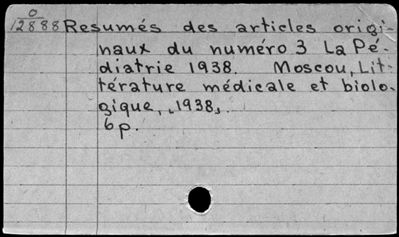 O
12888 Resumés des articles origi-
naux du numéro 3 La Pé-
diatrie 1938. Moscou, Lit-
térature médicale et biolo-
gique, ⌞1938⌟.
6p.